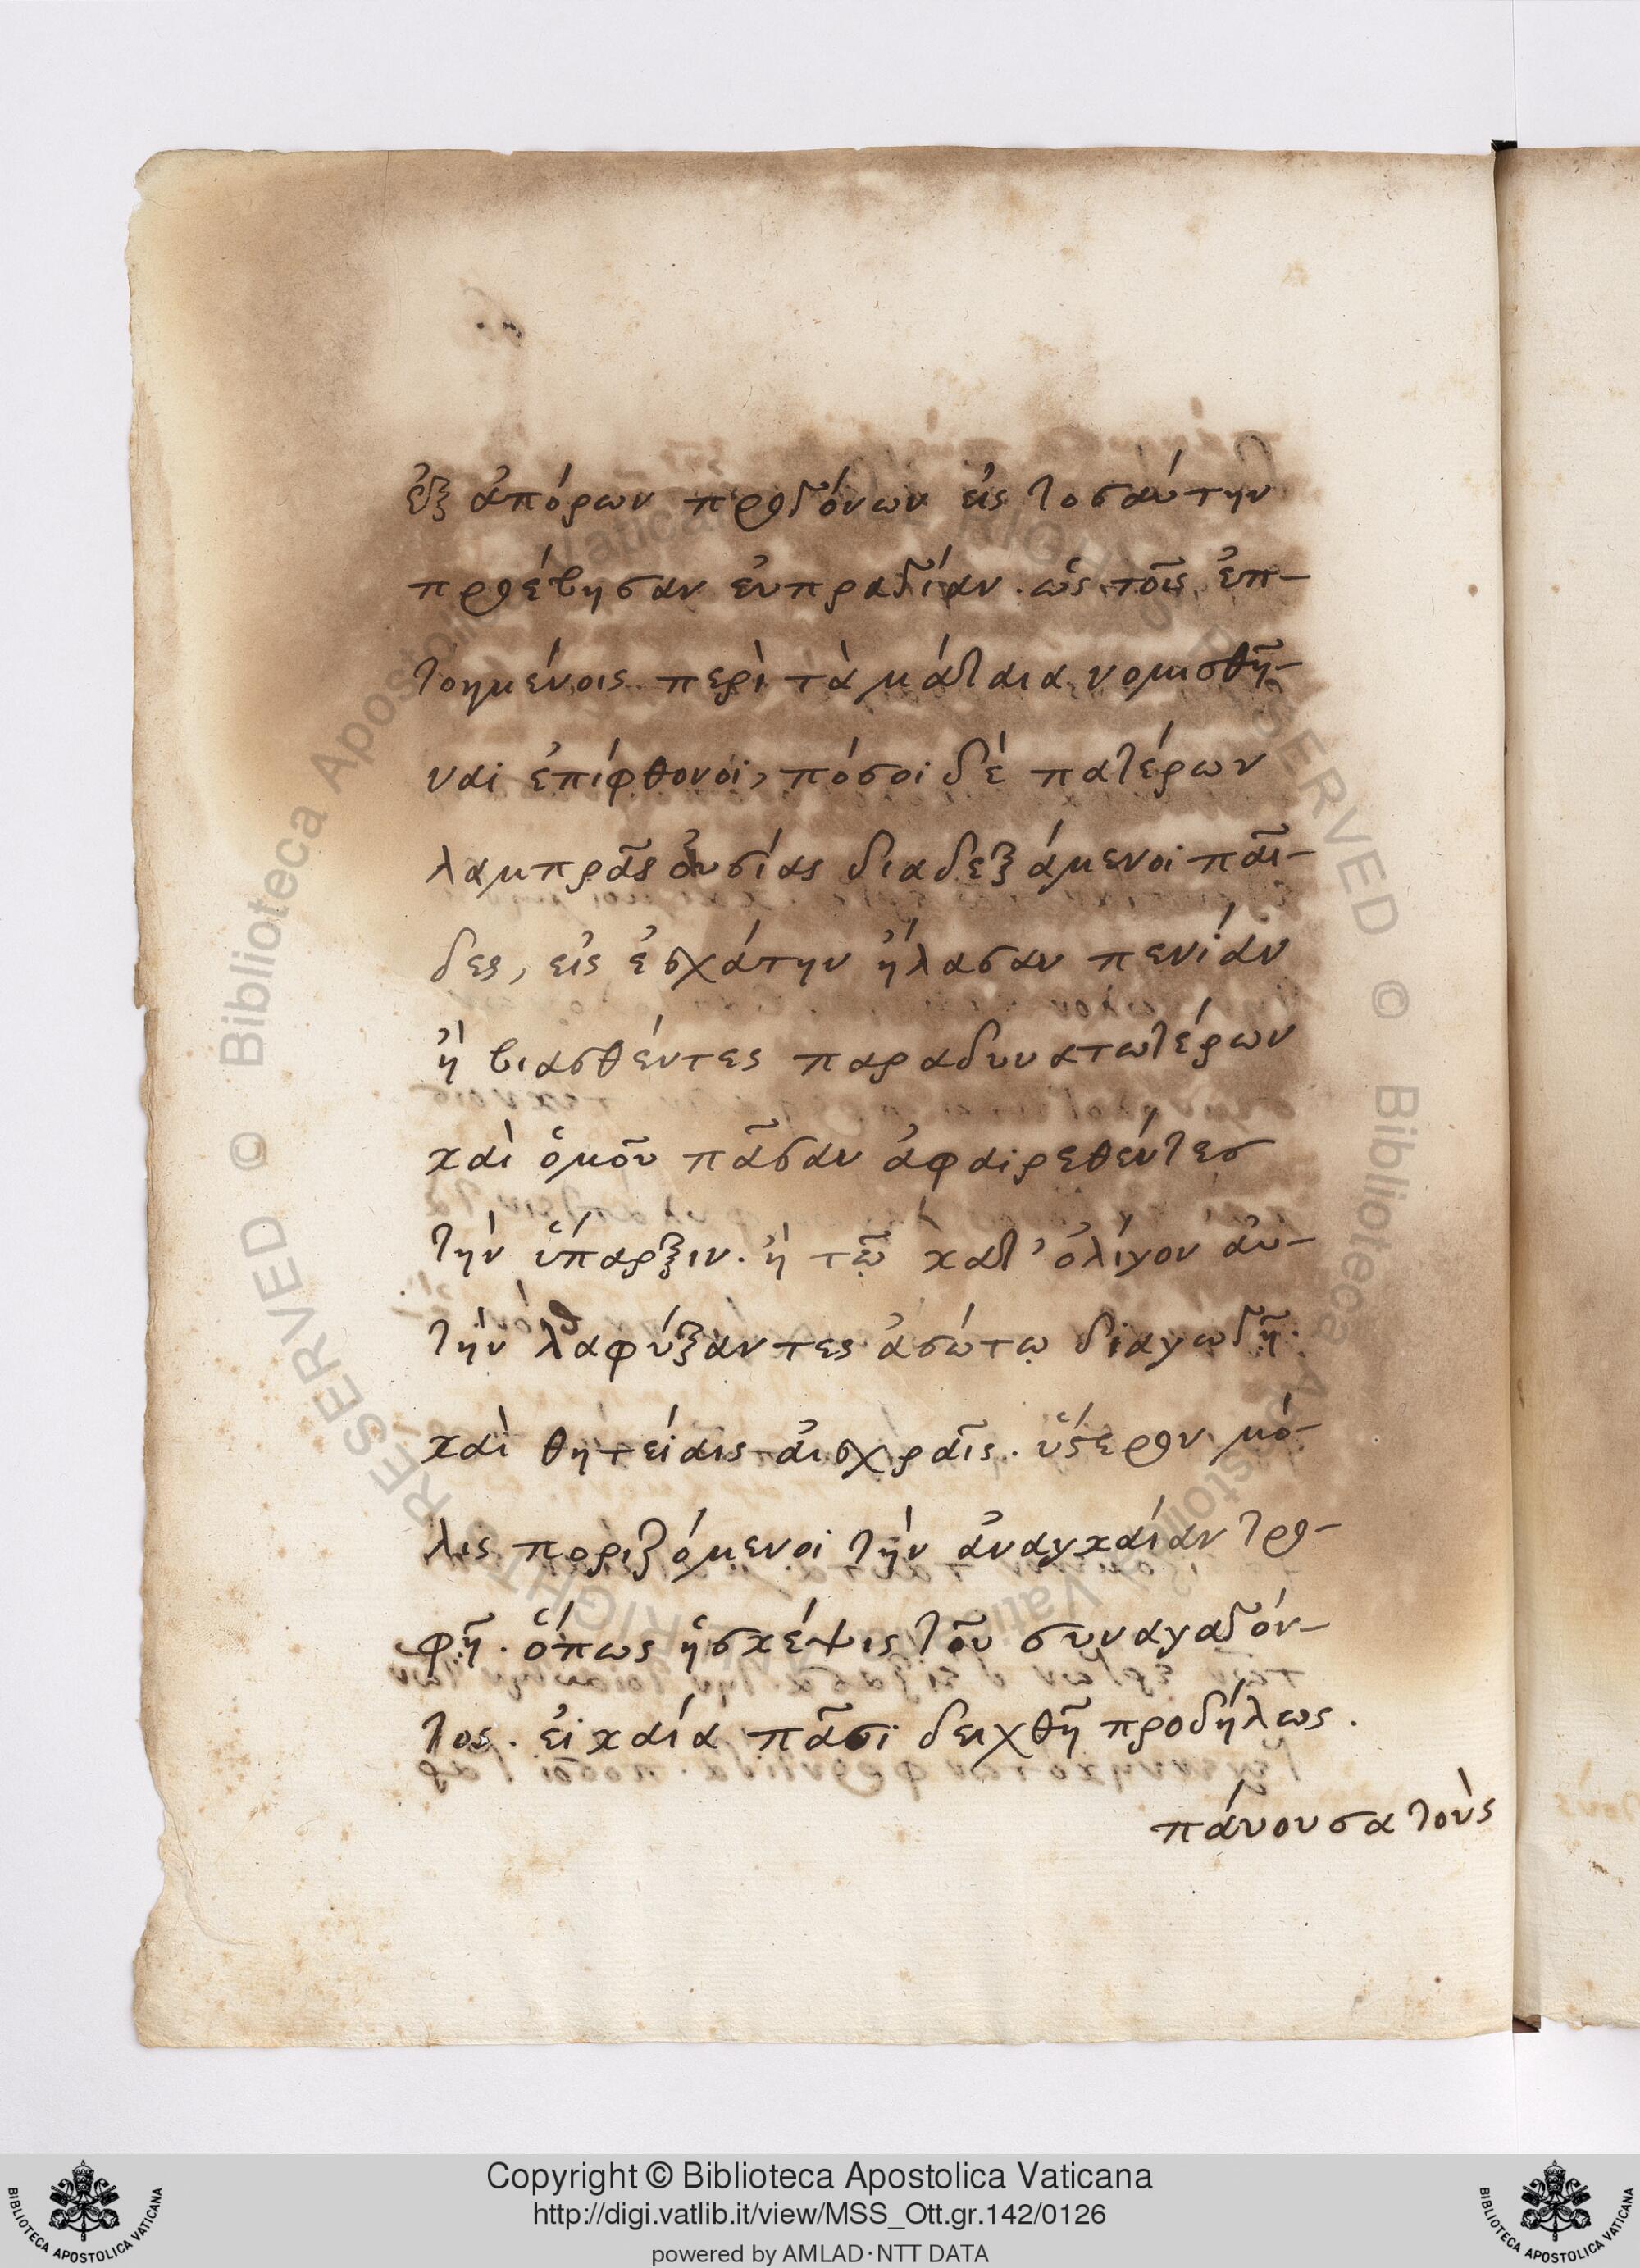 ἐξ ἀπόρων προγόνων εἰς τοσαύτην
προέβησαν εὐπραγίαν. ὡς τοῖς ἐπ-
τοημένοις περὶ τὰ μάταια νομισθῆ-
ναι ἐπίφθονοι, πόσοι δὲ πατέρων
λαμπρᾶς οὐσίας διαδεξάμενοι παῖ-
δες, εἰς ἐσχάτην ἤλασαν πενίαν
ἢ βιασθέντες παραδυνατωτέρων
καὶ ὁμοῦ πᾶσαν ἀφαιρεθέντες
τὴν ὕπαρξιν. ἢ τῷ κατ' ὀλίγον αὐ-
τὴν λαφύξαντες ἀσώτῳ διαγωγῇ.
καὶ θητείαις αἰσχραῖς. ὕστερον μό-
λις ποριζόμενοι τὴν ἀναγκαίαν τρο-
φῇ. ὅπως ἡ σκέψις τοῦ συναγαγόν-
τος. εἰκαία πᾶσι δειχθῇ προδήλως.
πάνουσα τοὺς
Copyright © Biblioteca Apostolica Vaticana
http://digi.vatlib.it/view/MSS_Ott.gr.142/0126
powered by AMLAD·NTT DATA
BIBLIOTECA APOSTOLICA VATICANA
BIBLIOTECA APOSTOLICA VATICANA